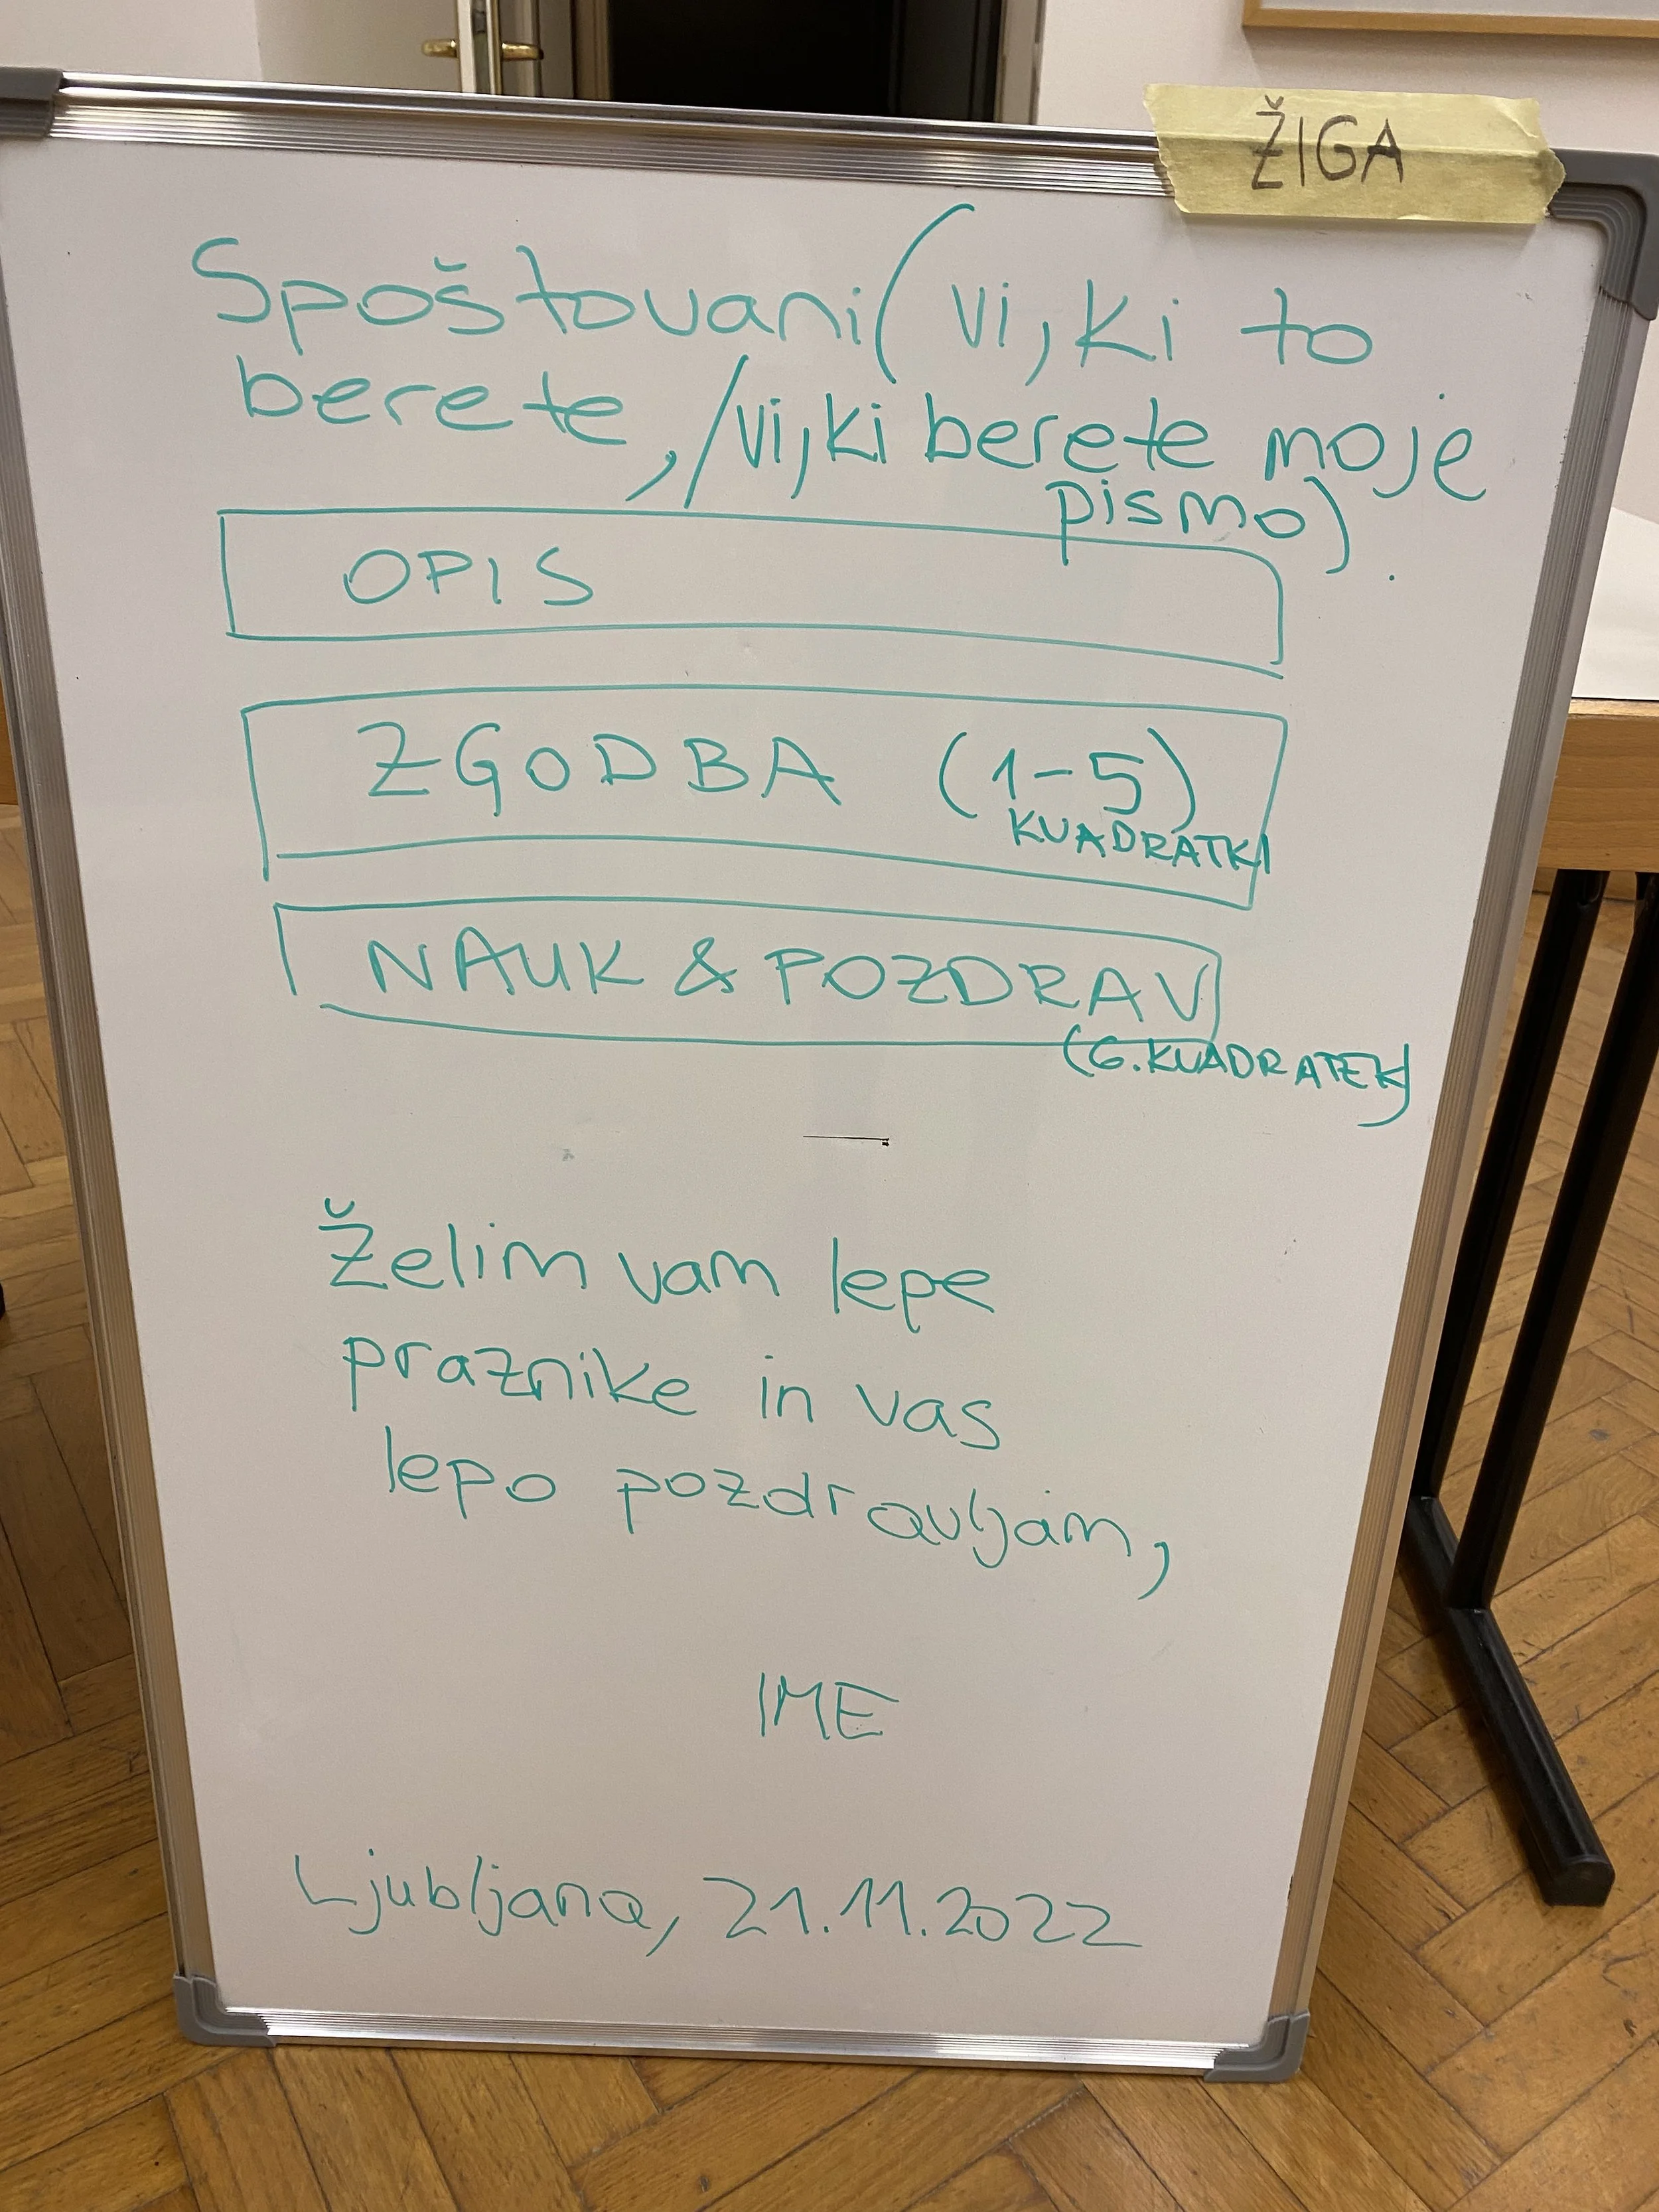 ŽIGA
Spoštovani (vi, ki to
berete, /vi, ki berete moje
pismo).
OPIS
ZGODBA (1-5)
KVADRATKI
NAUK & POZDRAV
(6. KVADRATEK)
Želim vam lepe
praznike in vas
lepo pozdravljam,
IME
Ljubljana, 21.11.2022